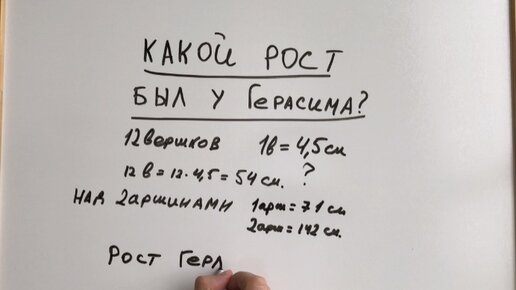 КАКОЙ РОСТ
БЫЛ У ГЕРАСИМА?
12 вершков 1в = 4,5 см
12 в = 12 · 4,5 = 54 см. ?
НАД 2 АРШИНАМИ 1 арш = 71 см
2 арш = 142 см.
РОСТ ГЕРА